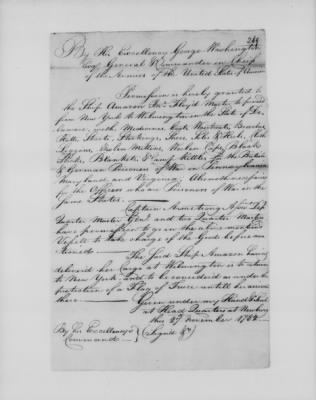 By His Excellency George Washington
Esqr General & Commander in Chief
of the Armies of the United States of America
Permission is hereby granted to
the Ship Amazon Floyd Master to proceed
from New York to Wilmington in the State of De-
laware, with Medicines, Coats, Waistcoats, Breeches
Hatts, Shirts, Stockings, Shoes, Soles & Heels,
Leggons, Woolen Mittens, Woolen Caps, Black
Stocks, Blankets, & Camp Kettles for the British
& German Prisoners of War in Pennsylvania
Maryland and Virginia, Also necessaries
for the Officers who are Prisoners of War in the
same States.
Captain Armstrong
Quarter Master Genl and two Quarter Masters
have permission to go in the above mentioned
Vessell to take charge of the Goods before men-
tioned
The Said Ship Amazon having
delivered her Cargo at Wilmington is to return
to New York and to be considered as under the
protection of a Flag of Truce untill he arrives
there
Given under my Hand & Seal
at Head Quarters at Newburg
this 2d November 1782
By his Excellency's
Command
(Signed